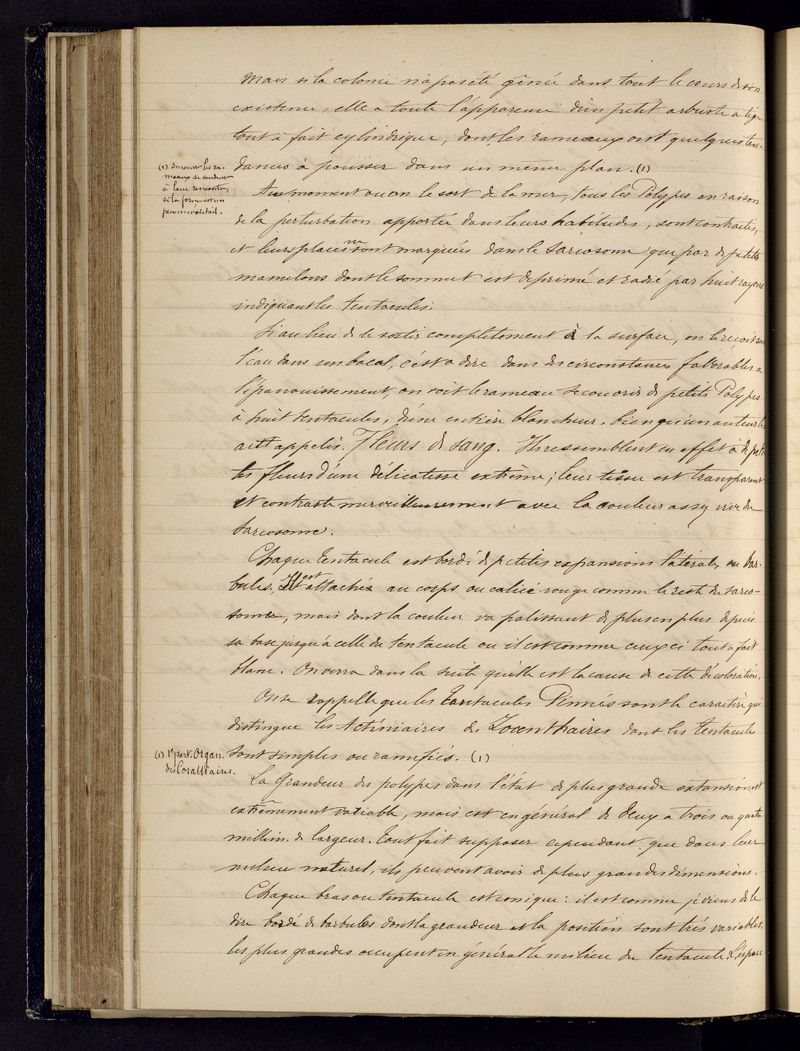 Mais si la colonie n'a pas été gênée dans tout le cours de son
existence, elle a toute l'apparence d'un petit arbuste a tige
tout à fait cylindrique, dont les rameaux ont quelques ten-
dances à pousser dans un même plan. (1)
(1) Souvent les ra-
meaux se soudent
à leur rencontre,
si la
Au moment ou on le sort de la mer, tous les Polypes en raison
de la perturbation apportée dans leurs habitudes, sont contractés,
et leurs places ne sont marquées dans le Sarcosome que par de petits
mamelons dont le sommet est deprimé et radié par huit rayons
indiquant les tentacules.
Si au lieu de le sortir complètement à la surface, on le reçoit dans
l'eau dans un bocal, c'est a dire dans des circonstances favorables a
l'épanouissement, on voit le rameau se couvrir de petits Polypes
à huit tentacules, d'une entière blancheur, bien qu'un auteur les
ait appelés Fleurs de sang. Ils ressemblent en effet à de peti-
tes fleurs d'une délicatesse extrême; leur tissu est transparent
et contraste merveilleusement avec la couleur assez vive du
Sarcosome.
Chaque Tentacule est bordé de petites expansions latérales ou bar-
bules. Il est attaché au corps ou calice rouge comme le reste du sarco-
some, mais dont la couleur va palissant de plus en plus depuis
sa base jusqu'à celle du tentacule ou il est comme ceux ci tout a fait
blanc. On verra dans la suite quelle est la cause de cette décoloration.
On se rappelle que les Tentacules Pinnés sont le caractère qui
distingue les Actiniaires des Zoanthaires dont les tentacules
sont simples ou ramifiés. (1)
(1) 1e part. Organ.
des Coralliaires.
La Grandeur des polypes dans l'état de plus grande extansion est
extrêmement variable, mais est en général de deux a trois ou quatre
millim. de largeur. Tout fait supposer cependant que dans leur
milieu naturel, ils peuvent avoir de plus grandes dimensions.
Chaque bras ou tentacule est conique: il est comme je viens de le
dire bordé de barbules dont la grandeur et la position sont très variables,
les plus grandes occupent en général le milieu du tentacule. L'espace